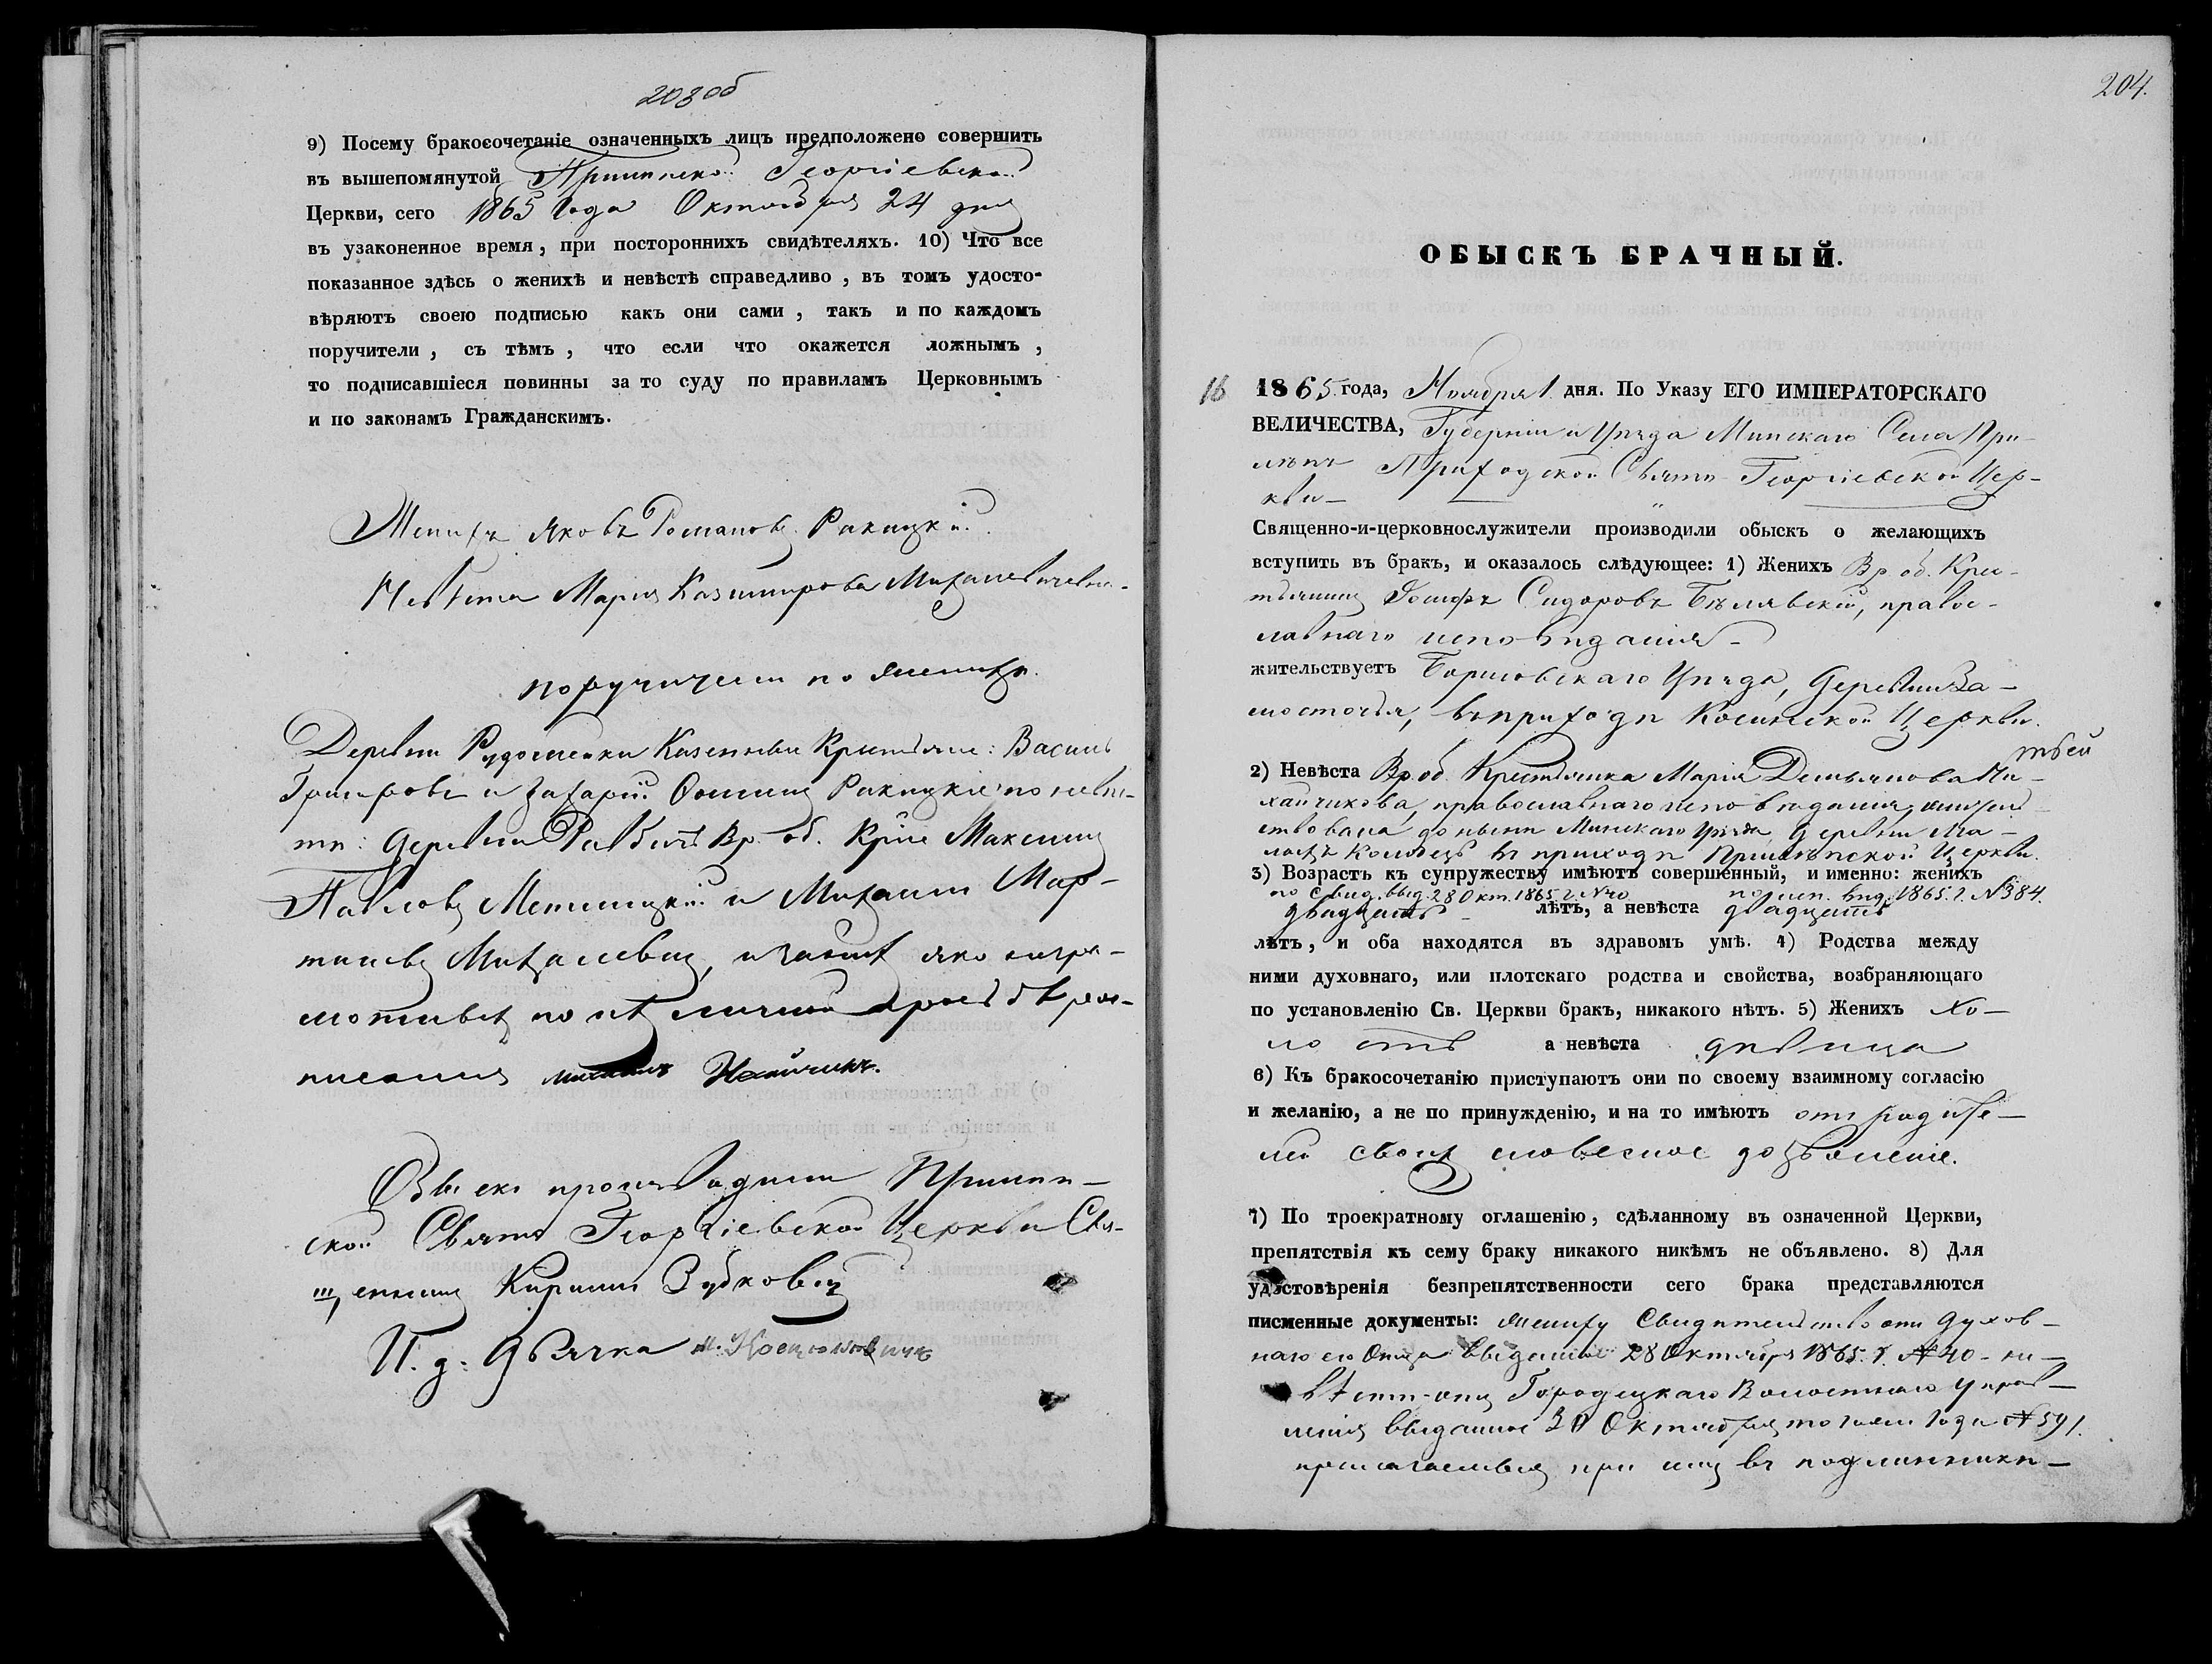 203об
9) Посему бракосочетаніе означенныхъ лицъ предположено совершить
въ вышепомянутой Прилѣпской Георгіевской
Церкви, сего 1865 года Октября 24 дня
въ узаконенное время, при постороннихъ свидѣтеляхъ. 10) Что все
показанное здѣсь о женихѣ и невѣстѣ справедливо, въ томъ удосто-
вѣряютъ своею подписью какъ они сами, такъ и по каждомъ
поручители, съ тѣмъ, что если что окажется ложнымъ,
то подписавшіеся повинны за то суду по правиламъ Церковнымъ
и по законамъ Гражданскимъ.
Женихъ Яковъ Романовъ Ракицкій
Невѣста Марія Казимирова
поручители по женихѣ.
Деревни Казенные Крестьяне: Василь
и Захарій Ракицкіе; по невѣ-
стѣ: деревни Вр. об. Кр-не Максимъ
Павловъ и Михаилъ Мар-
Михалевичъ, а за нихъ яко негра-
мотныхъ по ихъ личной прозьбѣ рос-
писался
Обыскъ производили Прилѣп-
ской Свято Георгіевской Церкви Свя-
щенникъ Кириллъ Зубковичъ
И. д. Дьячка
204.
ОБЫСКЪ БРАЧНЫЙ.
16 1865 года, Ноября 1 дня. По Указу ЕГО ИМПЕРАТОРСКАГО
ВЕЛИЧЕСТВА, Губерніи и Уѣзда Минскаго Села При-
лѣпъ Приходской Свято Георгіевской Цер-
кви
Священно-и-церковнослужители производили обыскъ о желающихъ
вступить въ бракъ, и оказалось слѣдующее: 1) Женихъ Вр. об. Крес-
тьянинъ Іосифъ Сидоровъ Бѣлявскій, правос-
лавнаго исповѣданія
жительствуетъ Борисовскаго Уѣзда, деревни За-
мосточья, въ приходѣ Косинской Церкви.
2) Невѣста Вр. об. Крестьянка Марія Демьянова Ми-
хайчикова, православнаго исповѣданія, жительст-
вовала до нынѣ Минскаго Уѣзда, деревни
въ приходѣ Прилѣпской Церкви.
3) Возрастъ къ супружеству имѣютъ совершенный, и именно: женихъ
по свид. выд. 28 Окт. 1865 г. №40 по исп. вѣд. 1865 г. №384.
двадцать лѣтъ, а невѣста двадцать
лѣтъ, и оба находятся въ здравомъ умѣ. 4) Родства между
ними духовнаго, или плотскаго родства и свойства, возбраняющаго
по установленію Св. Церкви бракъ, никакого нѣтъ. 5) Женихъ хо-
лостъ а невѣста дѣвица
6) Къ бракосочетанію приступаютъ они по своему взаимному согласію
и желанію, а не по принужденію, и на то имѣютъ отъ родите-
лей своихъ словесное дозволеніе.
7) По троекратному оглашенію, сдѣланному въ означенной Церкви,
препятствія къ сему браку никакого никѣмъ не объявлено. 8) Для
удостовѣренія безпрепятственности сего брака представляются
писменные документы: жениху Свидѣтельство отъ духов-
наго его Отца выданное 28 Октября 1865 г. №40 - не-
вѣстѣ - отъ Городецкаго Волостнаго Управ-
ленія выданное 30 Октября того же года №591.
прилагаемыя при семъ въ подлинникѣ